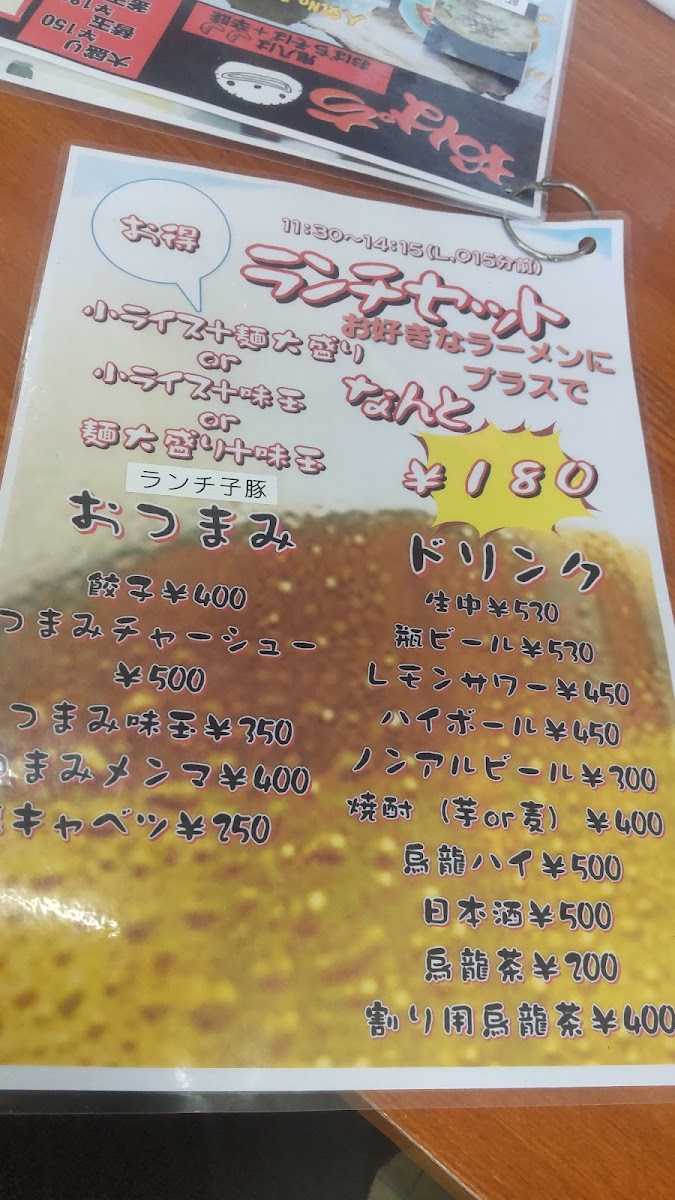 大盛り ¥150
おばちそば+辛味
おばち
お得
11:30~14:15(L,O15分前)
ランチセット
お好きなラーメンに
プラスで
なんと
¥180
小ライス+麺大盛り
or
小ライス+味玉
or
麺大盛り+味玉
ランチ子豚
おつまみ
餃子¥400
つまみチャーシュー
¥500
つまみ味玉¥350
つまみメンマ¥400
キャベツ¥250
ドリンク
生中¥530
瓶ビール¥530
レモンサワー¥450
ハイボール¥450
ノンアルビール¥300
焼酎 (芋or麦) ¥400
烏龍ハイ¥500
日本酒¥500
烏龍茶¥200
割り用烏龍茶¥400